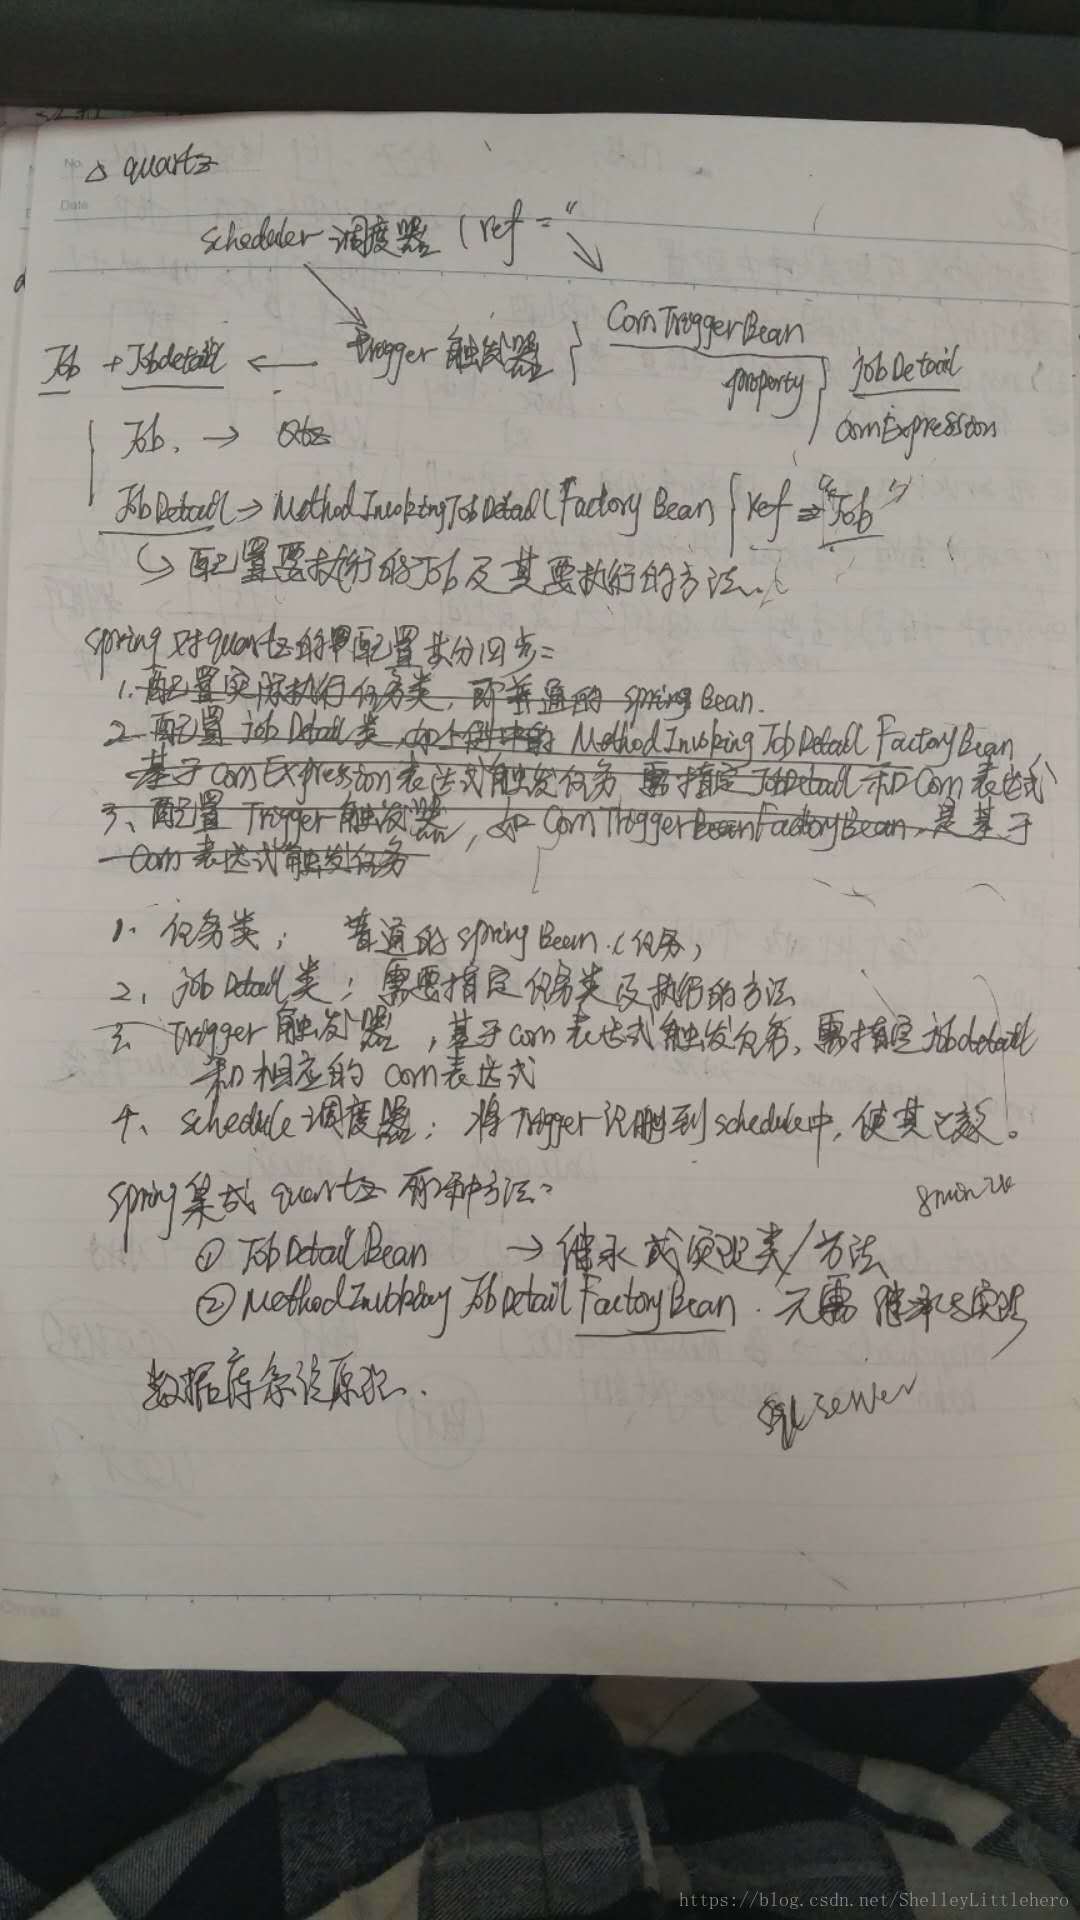 △ quartz
scheduler 调度器 ( ref = "
trigger 触发器 } ComTriggerBean
Job + Jobdetail ← property } jobDetail
comExpression
Job. →
JobDetail → MethodInvokingJobDetailFactoryBean { ref ⇒ "Job"
↳ 配置要执行的Job及其要执行的方法.
spring对quartz的配置共分四步:
1. 配置实际执行任务类, 即普通的 spring Bean.
2. 配置 job Detail 类, 如个例中的 MethodInvokingJobDetailFactoryBean
基于comExpression表达式触发任务 需指定JobDetail和Com表达式
3、配置 Trigger 触发器, 如 ComTriggerBeanFactoryBean, 是基于
Com 表达式触发任务
1. 任务类; 普通的springBean.(任务)
2、jobDetail类; 需要指定任务类及执行的方法
3. Trigger 触发器, 基于com表达式触发任务、需指定jobdetail
和相应的com表达式
4、schedule 调度器; 将Trigger识册到schedule中, 使其已效。
spring集成 quartz 两种方法:
① JobDetailBean → 继承或实现类/方法
② MethodInvokingJobDetailFactoryBean. 无需继承与实现
数据库
sqlserver
https://blog.csdn.net/ShelleyLittlehero